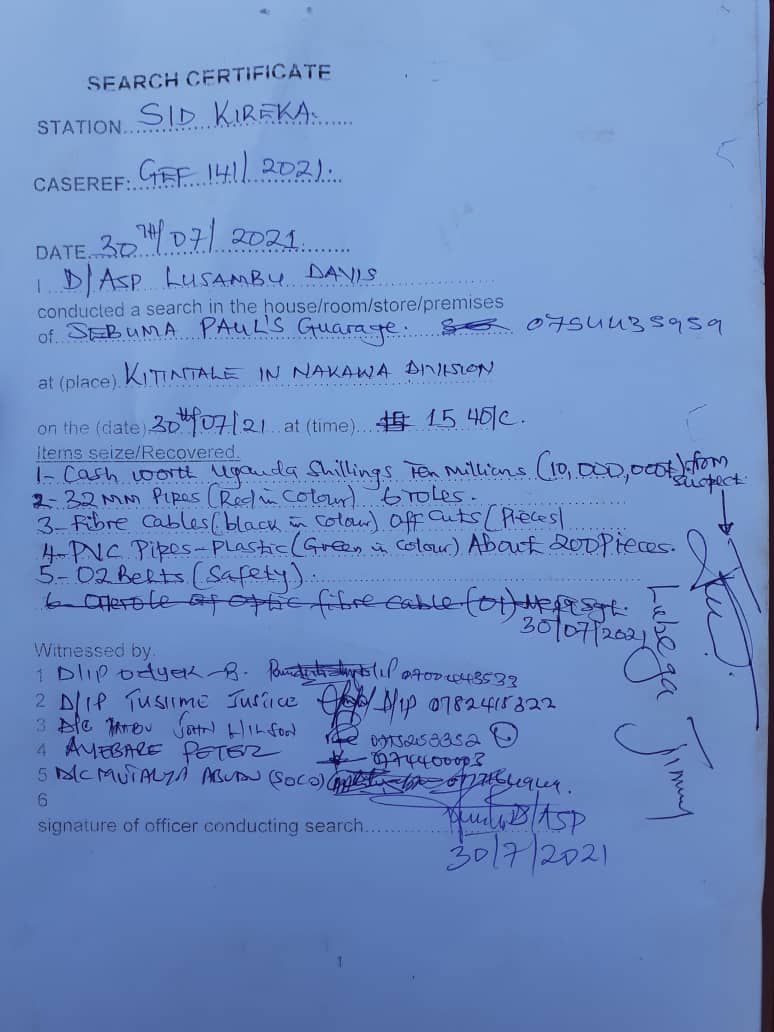 SEARCH CERTIFICATE
STATION SID KIREKA.
CASEREF: GEF 141/2021.
DATE 30TH/07/2021
I D/ASP LUSAMBU DAVIS
conducted a search in the house/room/store/premises
of SEBUMA PAUL'S Guarage. 0754435959
at (place) KITINTALE IN NAKAWA DIVISION
on the (date) 30th/07/21 at (time) 15 40/C.
items seize/Recovered.
1- Cash worth Uganda Shillings Ten Millions (10,000,000/=) from suspect
2- 32MM Pipes (Red in Colour) 6 roles.
3- Fibre Cables (black in Colour) off cuts (Pieces)
4- PVC Pipes-Plastic (Green in Colour) About 200 Pieces.
5- 02 Belts (Safety).
6- One role of optic fibre cable (01)
30/07/2021
Lubega Jimmy
Witnessed by.
1 D/IP Odyek-B. D/IP
2 D/IP TUSIIME JUSTICE D/IP 0782415322
3 D/C JOHN WILSON
4 AYEBARE PETER
5 D/C (SOCO)
6
signature of officer conducting search D/ASP
30/7/2021
1